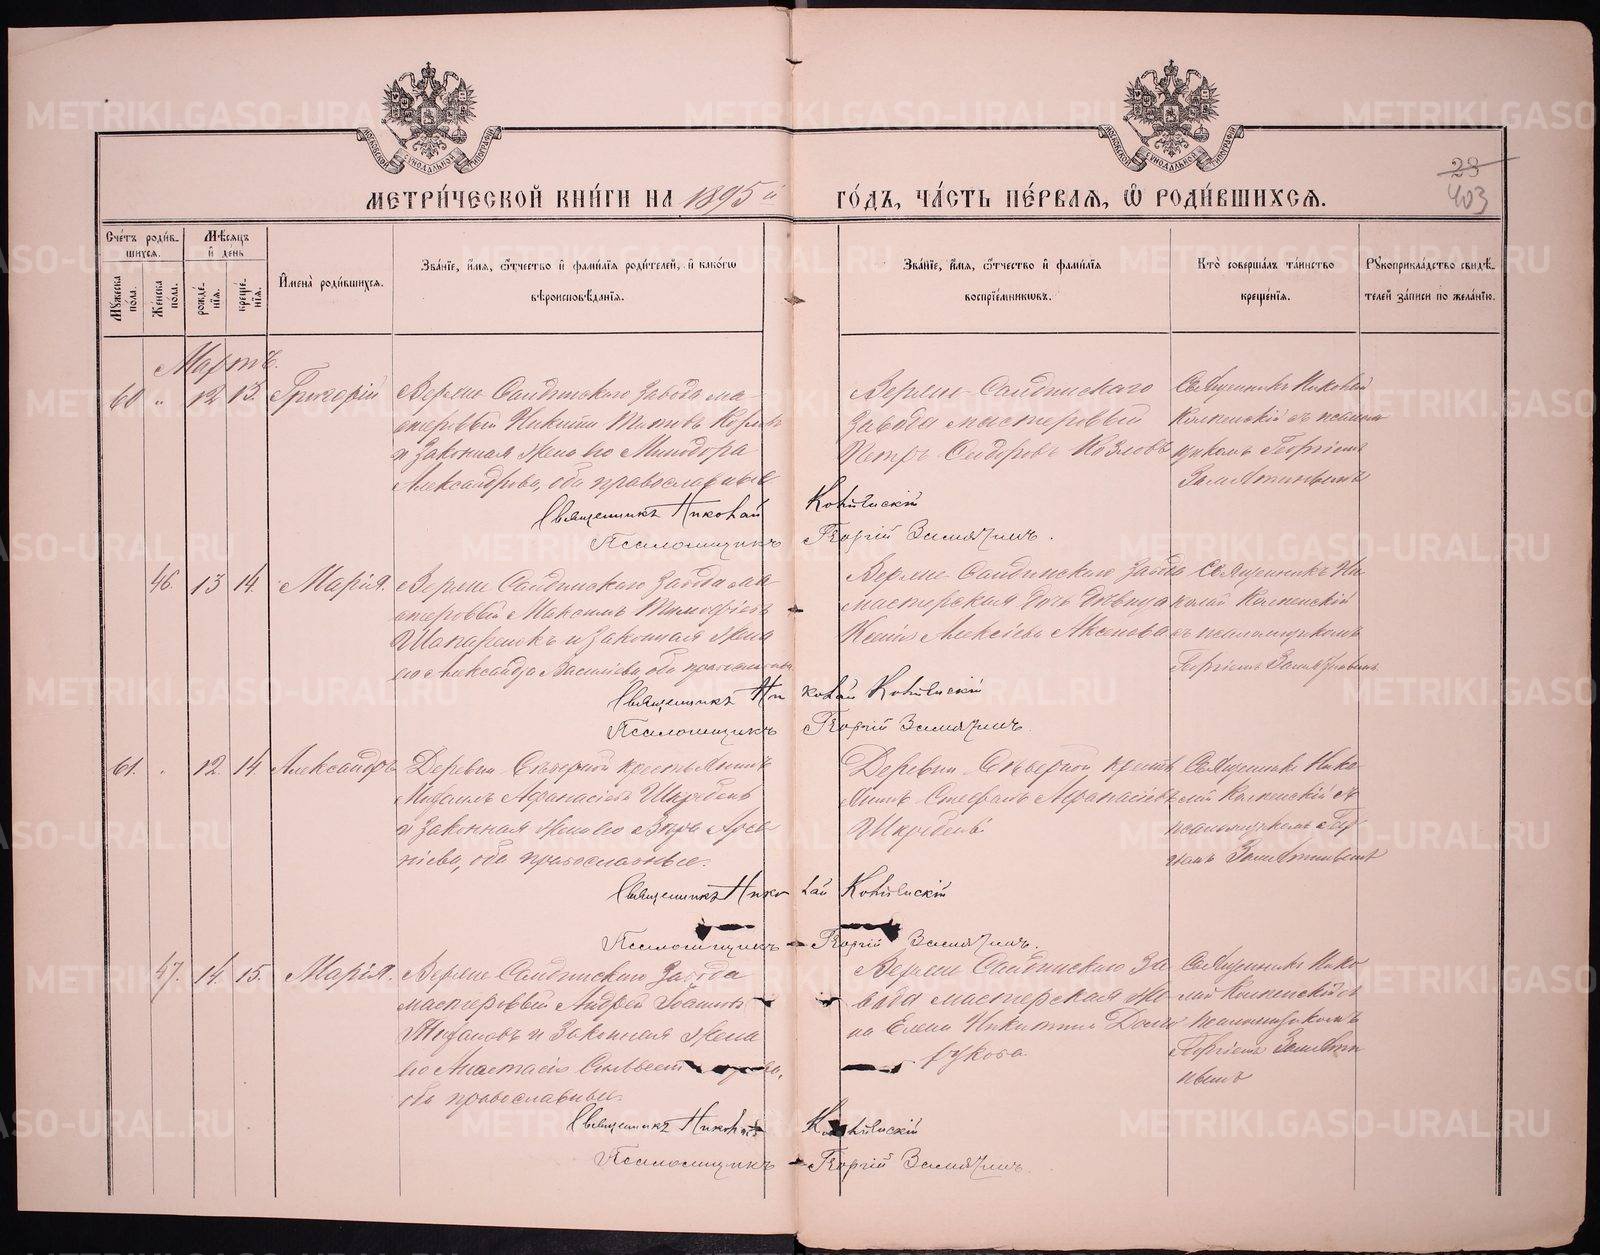 МЕТРИ́ЧЕСКОЙ КНИ́ГИ НА 1895й ГО́ДЪ, ЧА́СТЬ ПЕ́РВАЯ, Ѿ РОДИ́ВШИХСЯ.
23
403
Счетъ роди́в-
шихся.
Мужеска пола.
Женска пола.
Мѣсяцъ
и день
рожде́-
нія.
креще́-
нія.
Имена роди́вшихся.
Зва́ніе, и́мя, ѻтчество и фами́лія роди́телей, и како́гѡ
вѣроисповѣ́данія.
Зва́ніе, и́мя, ѻтчество и фами́лія
воспріе́мникѡвъ.
Кто̀ соверша́лъ та́инство
креще́нія.
Рукоприкла́дство свидѣ́-
телей за́писи по жела́нію.
Мартъ.
60 " 12 13. Григорій
Верхне Салдинскаго Завода ма-
стеровый Никита Титовъ Козловъ
и Законная жена его Минодора
Александрова, оба православные.
Верхне-Салдинскаго
Завода мастеровый
Петръ Сидоровъ Козловъ
Священникъ Николай
съ псалом
щикомъ Георгіемъ
Замятинымъ
Священникъ Николай
Псаломщикъ Георгій Замятинъ.
46. 13 14. Марія.
Верхне Салдинскаго Завода ма-
стеровый Максимъ Тимофѣевъ
и Законная жена
его Александра Васильева, оба православные
Верхне-Салдинскаго Завода
мастерская дочь дѣвица
Алексѣева Аксенова
Священникъ Ни-
колай
съ псаломщикомъ
Георгіемъ Замятинымъ
Священникъ Николай
Псаломщикъ Георгій Замятинъ.
61. " 12. 14 Александръ
Деревни Сѣверной крестьянинъ
Михаилъ Афанасіевъ
и Законная жена его Вѣра Арсе-
ніева, оба православные.
Деревни Сѣверной кресть
янинъ Стефанъ Афанасіевъ
Священникъ Нико-
лай съ
псаломщикомъ Геор
гіемъ Замятинымъ
Священникъ Николай
Псаломщикъ Георгій Замятинъ.
47. 14. 15. Марія.
Верхне Салдинскаго Завода
мастеровый Андрей Іоанновъ
и Законная жена
его Анастасія
оба православные.
Верхне Салдинскаго За
вода мастерская же
на Елена Никитина Долго
рукова
Священникъ Нико
лай съ
псаломщикомъ
Георгіемъ Замяти
нымъ
Священникъ Николай
Псаломщикъ Георгій Замятинъ.
METRIKI.GASO-URAL.RU